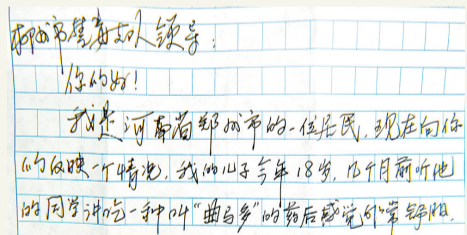 柳州市禁毒支队领导:
你们好!
我是河南省郑州市的一位居民,现在向你
们反映一个情况,我的儿子今年18岁,几个月前听他
的同学讲吃一种叫“曲马多”的药后感觉非常舒服,